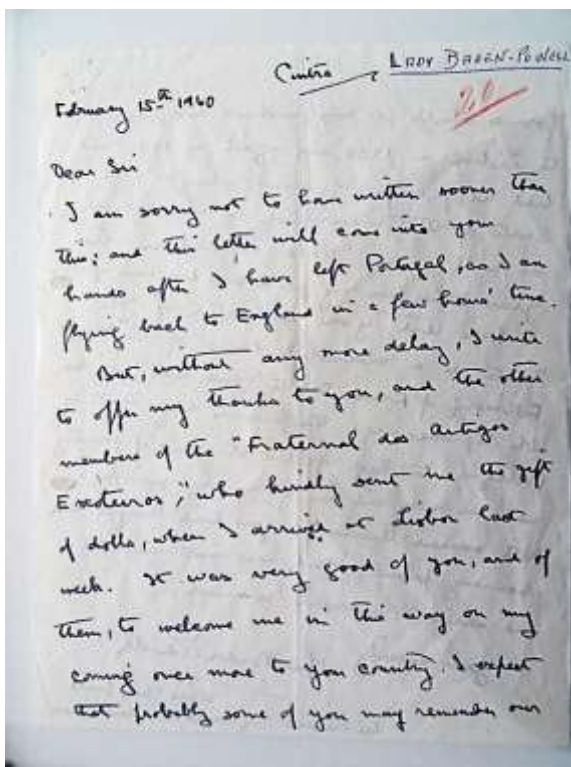 Cintra
LADY BADEN-POWELL
20
February 15th 1960
Dear Sir
I am sorry not to have written sooner than
this; and this letter will come into your
hands after I have left Portugal, as I am
flying back to England in a few hours' time.
But, without any more delay, I write
to offer my thanks to you, and the other
members of the "Fraternal dos Antigos
Escoteiros", who kindly sent me the gift
of dolls, when I arrived at Lisbon last
week. It was very good of you, and of
them, to welcome me in this way on my
coming once more to your country. I expect
that probably some of you may remember our